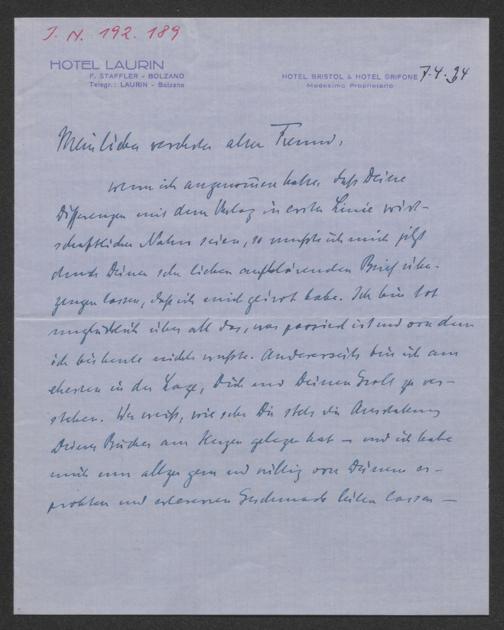 I. N. 192.189
HOTEL LAURIN
F. STAFFLER - BOLZANO
Telegr.: LAURIN - Bolzano
HOTEL BRISTOL & HOTEL GRIFONE
Medesimo Proprietario
7.4.34
Mein lieber verehrter alter Freund,
wenn ich angenom̅en habe, daß Deine
Differenzen mit dem Verlag in erster Linie wirt-
schaftlicher Natur seien, so mußte ich mich jetzt
durch Deinen sehr lieben aufklärenden Brief über-
zeugen lassen, daß ich mich geirrt habe. Ich bin tot
unglücklich über all das, was passiert ist und von dem
ich bis heute nichts wußte. Andererseits bin ich am
ehesten in der Lage, Dich und Deinen Groll zu ver-
stehen. Wer weiß, wie sehr Dir stets die Ausstattung
Deiner Bücher am Herzen gelegen hat – und ich habe
mich nun allzu gern und willig von Deinem er-
probten und erlesenen Geschmack leiten lassen –